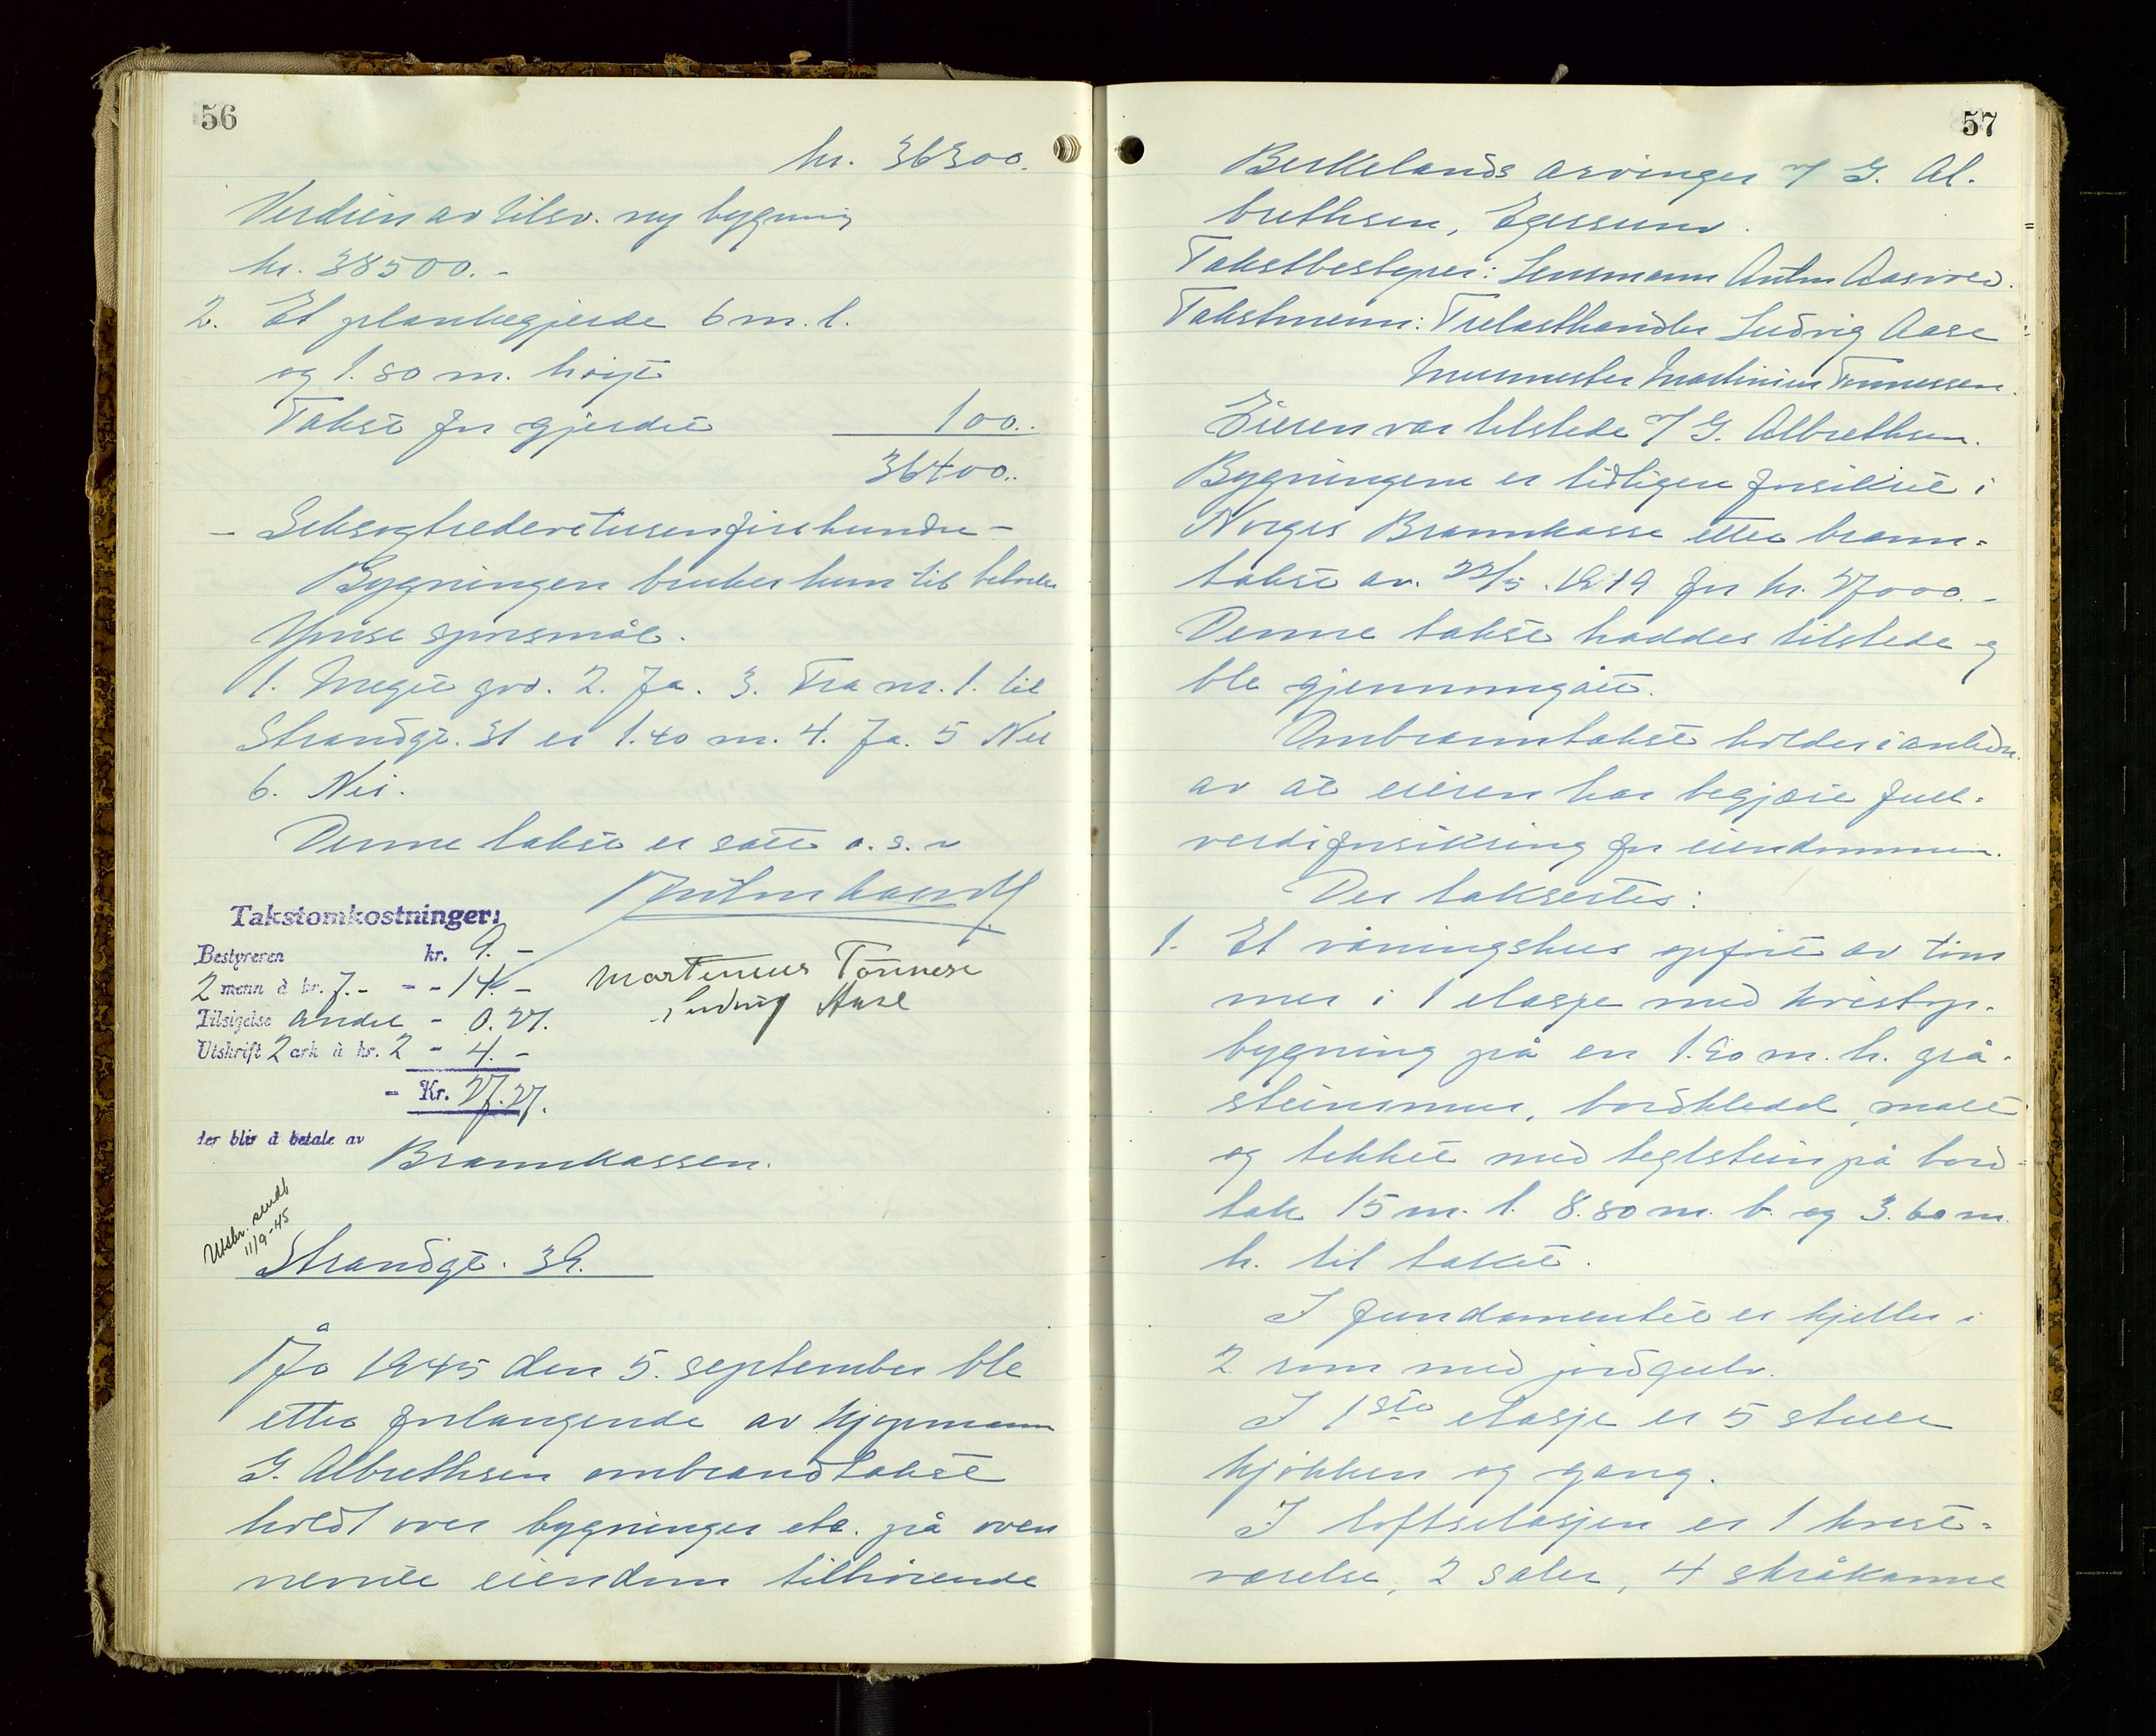 56
kr. 36300.
Verdien av tilsv. ny bygning
kr. 38500.-
2. Et plankegjerde 6 m. l.
og 1.80 m. høyt
Takst for gjerdet 100.-
36400.-
- Seksogtredevetusenfirehundre -
Bygningen brukes kun til beboelse
Ymse spørsmål.
1. Meget god. 2. Ja. 3. Fra nr. 1. til
Strandgt. 31 er 1.40 m. 4. Ja. 5 Nei
6. Nei.
Denne takst er satt o. s. v
Takstomkostninger:
Bestyreren kr. 9.-
2 menn à kr. 7.- - - 14.-
Tilsigelse andel - 0.27.
Utskrift 2 ark à kr. 2 - 4.-
- Kr. 27.27.
Martinius Tønnese
Ludvig Aase
der blir å betale av Brannkassen.
Utskr. sendt
11/9-45
Strandgt. 39.
År 1945 den 5. september ble
etter forlangende av kjøpmann
G. Albrethsen ombrandtakst
holdt over bygninger etc. på oven
nevnte eiendom tilhørende
57
Berkelands arvinger v/ G. Al-
brethsen, Egersund.
Takstbestyrer: Lensmann Anton Aasved.
Takstmenn: Trelasthandler Ludvig Aase
Murmester Martinius Tønnessen.
Eieren var tilstede v/ G. Albrethsen.
Bygningene er tidligere forsikret i
Norges Brannkasse etter brann=
takst av. 22/5. 1919 for kr. 27000.-
Denne takst haddes tilstede og
ble gjennomgått.
Ombranntakst holdes i anledn.
av at eieren har begjært full=
verdiforsikring for eiendommen.
Der taksertes:
1. Et våningshus opført av tøm
mer i 1 etasje med kvistop-
bygning på en 1.20 m. h. grå-
steinsmur, bordkledd, malt
og tekket med teglstein på bord=
tak 15 m. l. 8.80 m. b. og 3.60 m.
h. til taket.
I fundamentet er kjeller i
2 rom med jordgulv.
I 1ste etasje er 5 stuer
kjøkken og gang.
I loftsetasjen er 1 kvist=
værelse, 2 saler, 4 skråkamme